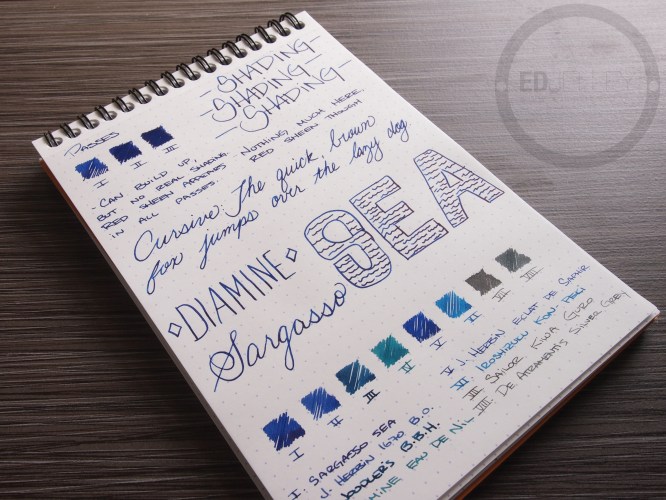 - SHADING -
- SHADING -
- SHADING -
PASSES
I II III
- CAN BUILD UP,
BUT NO REAL SHADING. NOTHING MUCH HERE.
RED SHEEN APPEARS RED SHEEN THOUGH
IN ALL PASSES.
Cursive: The quick, brown
fox jumps over the lazy dog.
DIAMINE
Sargasso
SEA
I II III IV V VI VII VIII
I: SARGASSO SEA
J. HERBIN 1670 B.O.
B.B.H.
EAU DE NIL
V J. HERBIN ECLAT DE SAPHIR
VI: IROSHIZUKU KON-PEKI
VII SAILOR KIWA GURO
VIII: DE ATRAMENTIS SILVER GREY
ED